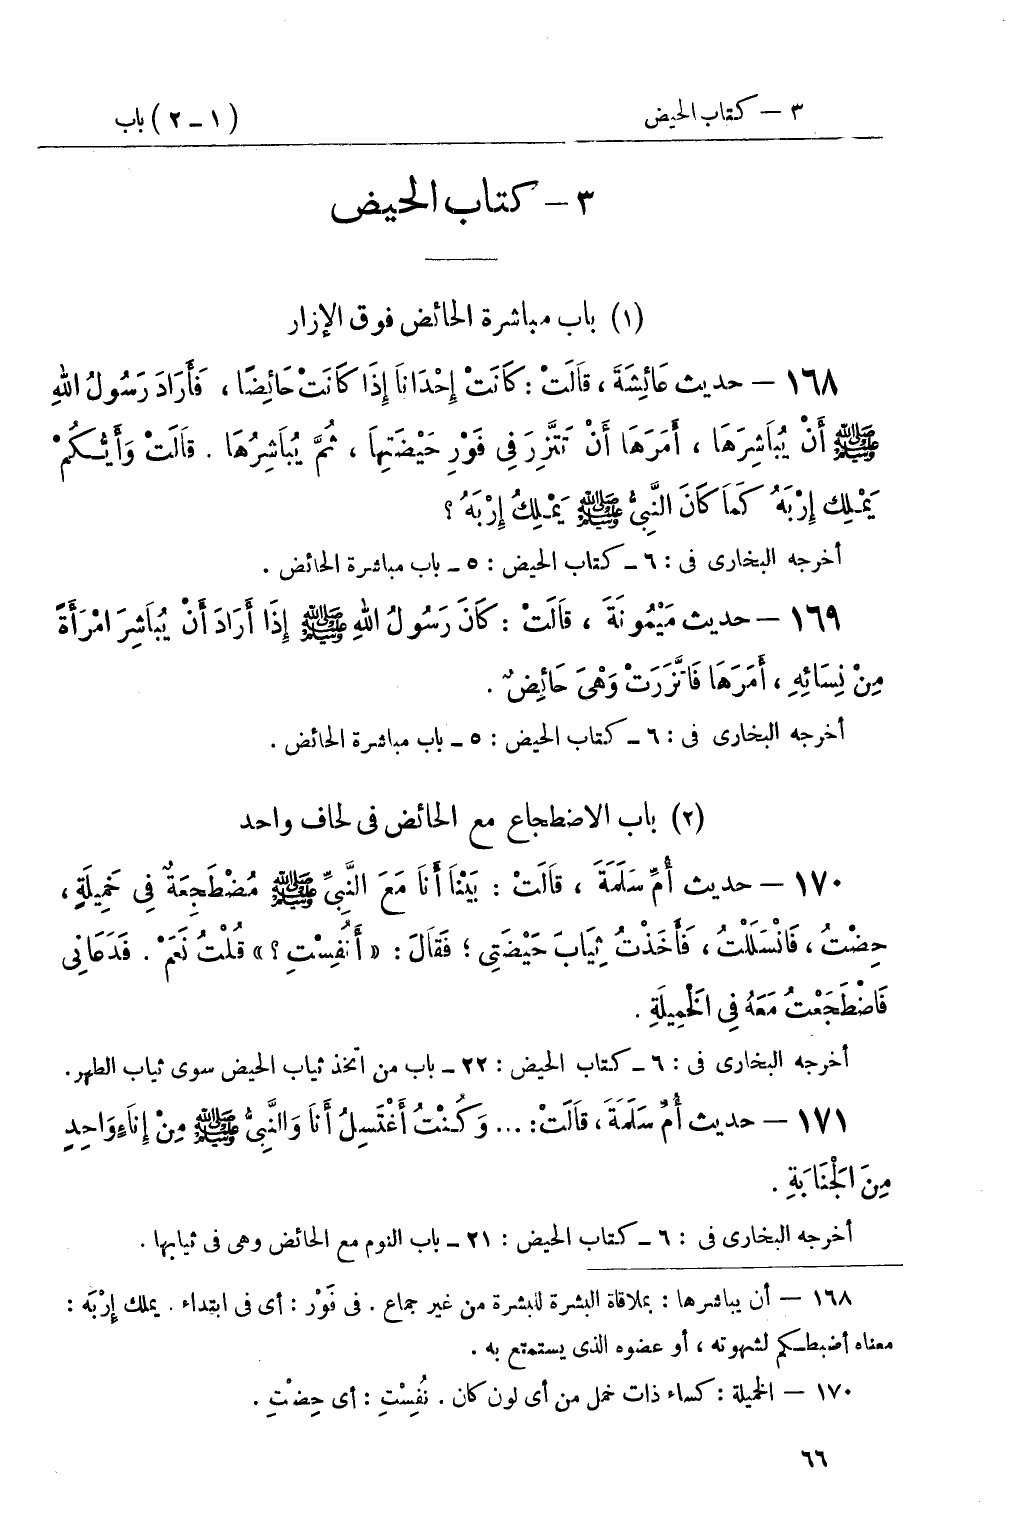 ٣ — كتاب الحيض (١ – ٢) باب
٣ – كتاب الحيض
(١) باب مباشرة الحائض فوق الإزار
١٦٨ — حديث عَائِشَةَ ، قَالَتْ : كَانَتْ إِحْدَانَا إِذَا كَانَتْ حَائِضًا ، فَأَرَادَ رَسُولُ اللهِ
ﷺ أَنْ يُبَاشِرَهَا ، أَمَرَهَا أَنْ تَتَّزِرَ فِى فَوْرِ حَيْضَتِهَا ، ثُمَّ يُبَاشِرُهَا . قَالَتْ وَأَيُّكُمْ
يَمْلِكُ إِرْبَهُ كَمَا كَانَ النَّبِىُّ ﷺ يَمْلِكُ إِرْبَهُ ؟
أخرجه البخارى فى : ٦ – كتاب الحيض : ٥ – باب مباشرة الحائض .
١٦٩ — حديث مَيْمُونَةَ ، قَالَتْ : كَانَ رَسُولُ اللهِ ﷺ إِذَا أَرَادَ أَنْ يُبَاشِرَ امْرَأَةً
مِنْ نِسَائِهِ ، أَمَرَهَا فَاتَّزَرَتْ وَهْىَ حَائِضٌ .
أخرجه البخارى فى : ٦ – كتاب الحيض : ٥ – باب مباشرة الحائض .
(٢) باب الاضطجاع مع الحائض فى لحاف واحد
١٧٠ — حديث أُمِّ سَلَمَةَ ، قَالَتْ : بَيْنَا أَنَا مَعَ النَّبِىِّ ﷺ مُضْطَجِعَةٌ فِى خَمِيلَةٍ ،
حِضْتُ ، فَانْسَلَلْتُ ، فَأَخَذْتُ ثِيَابَ حَيْضَتِى ؛ فَقَالَ : « أَنُفِسْتِ ؟ » قُلْتُ نَعَمْ . فَدَعَانِى
فَاضْطَجَعْتُ مَعَهُ فِى الْخَمِيلَةِ .
أخرجه البخارى فى : ٦ – كتاب الحيض : ٢٢ – باب من اتخذ ثياب الحيض سوى ثياب الطهر.
١٧١ — حديث أُمِّ سَلَمَةَ ، قَالَتْ : ... وَكُنْتُ أَغْتَسِلُ أَنَا وَالنَّبِىُّ ﷺ مِنْ إِنَاءٍ وَاحِدٍ
مِنَ الْجَنَابَةِ .
أخرجه البخارى فى : ٦ – كتاب الحيض : ٢١ – باب النوم مع الحائض وهى فى ثيابها .
١٦٨ — أن يباشرها : بملاقاة البشرة للبشرة من غير جماع . فى فَوْر : أى فى ابتداء . يملك إِرْبَه :
معناه أضبطكم لشهوته ، أو عضوه الذى يستمتع به .
١٧٠ — الخميلة : كساء ذات خمل من أى لون كان . نُفِسْتِ : أى حِضْتِ .
٦٦